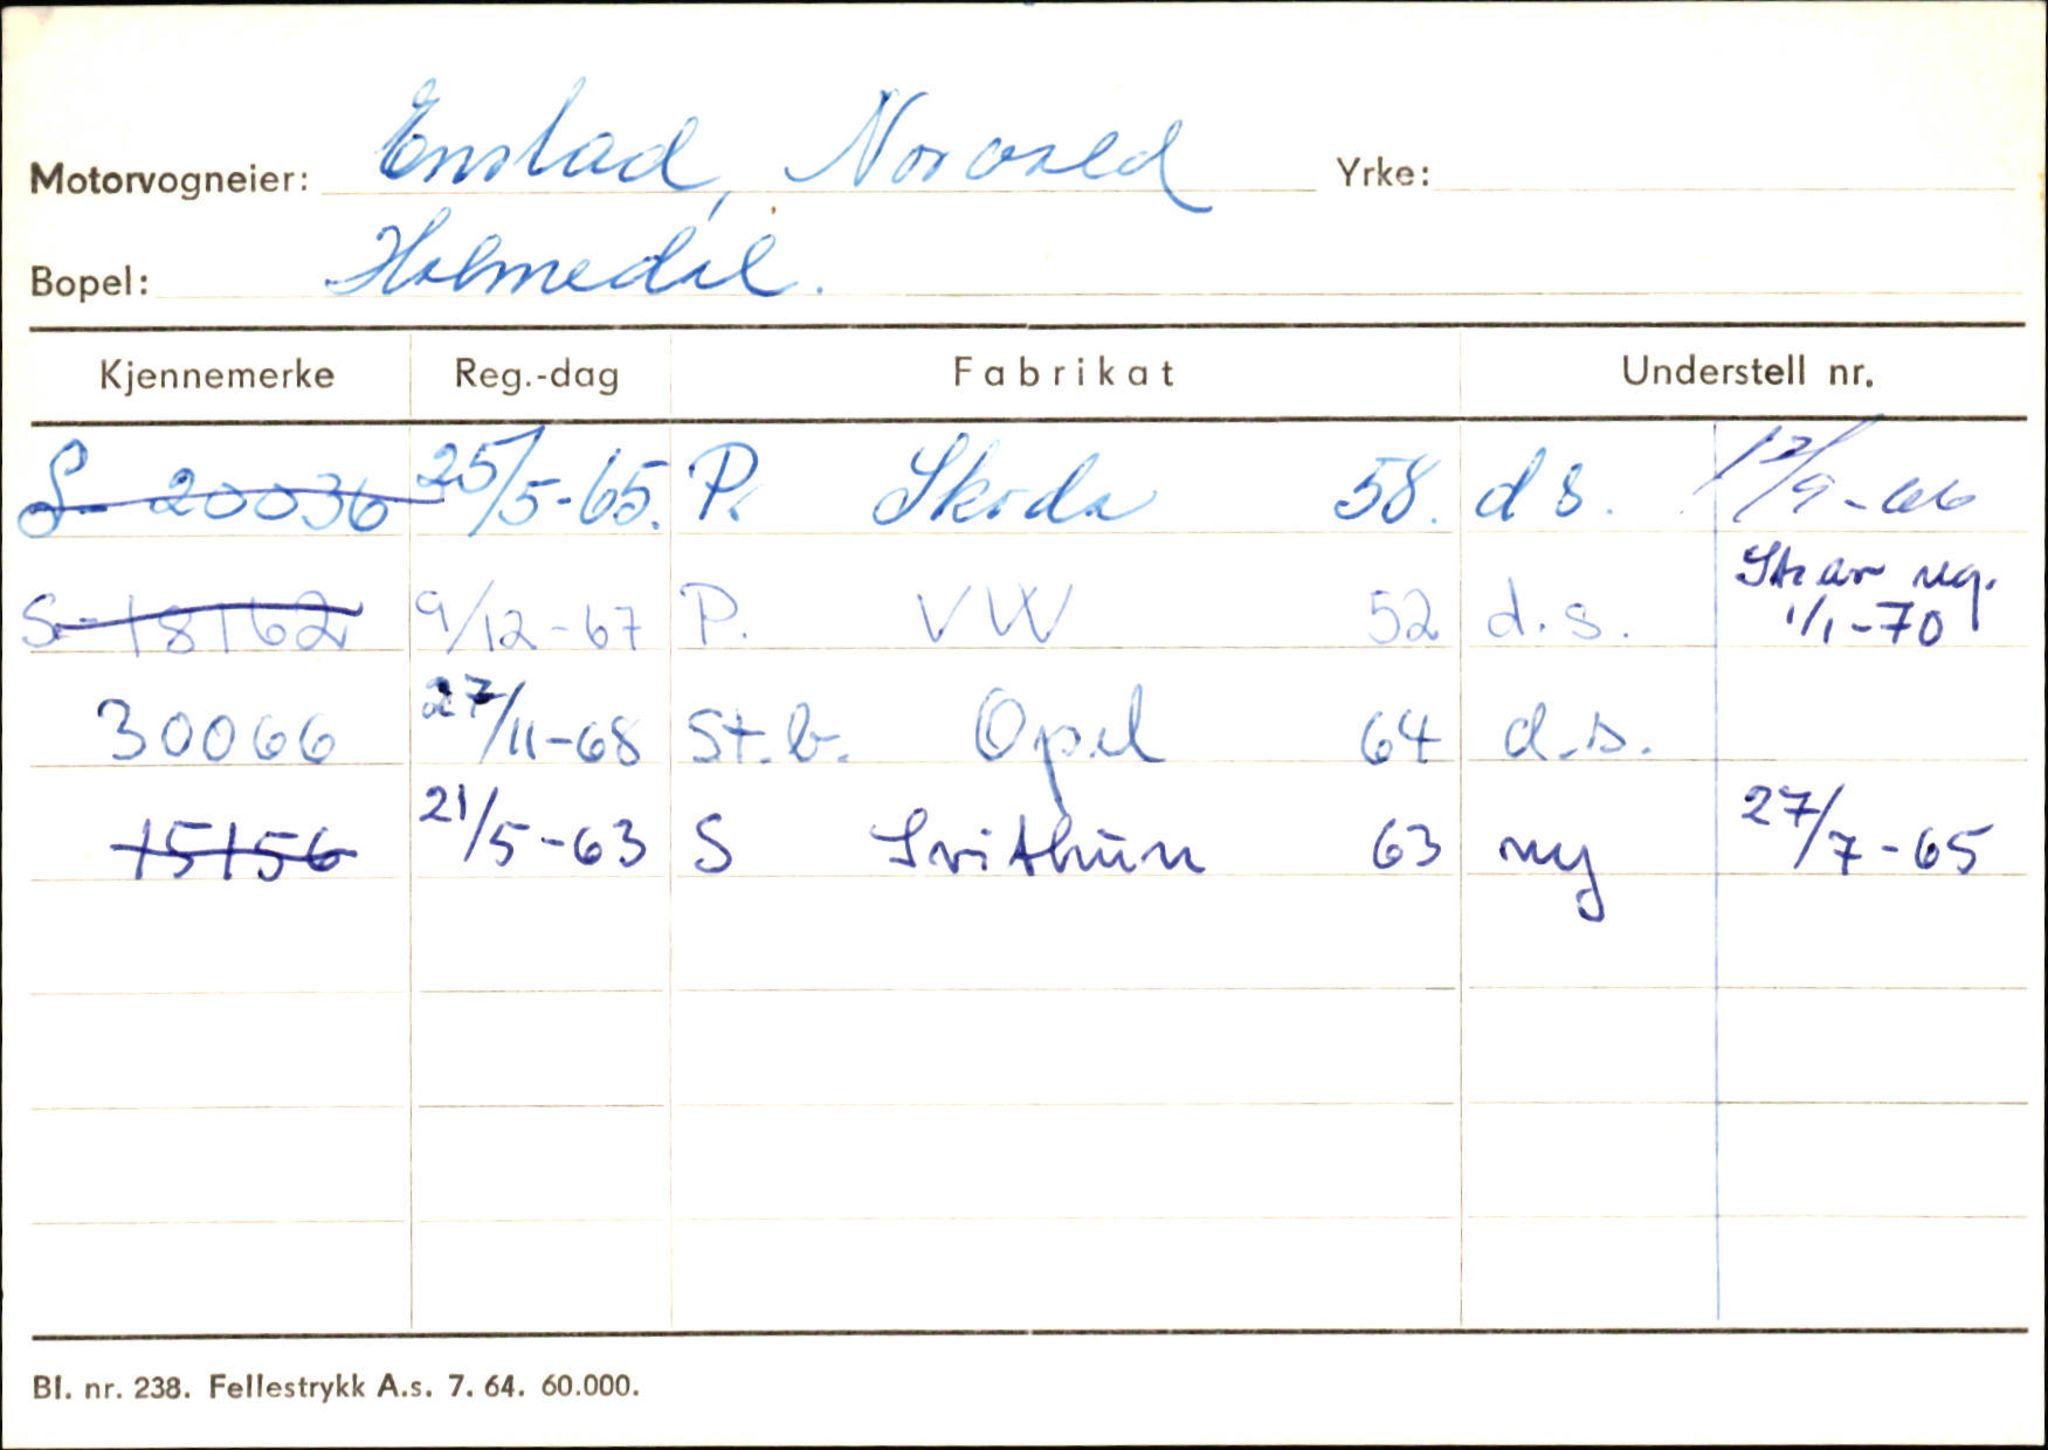 Motorvogneier: Enstad, Norvald Yrke:
Bopel: Holmedal.
Kjennemerke Reg.-dag Fabrikat Understell nr.
S-20036 25/5-65. P. Skoda 58. d s. 12/9-66
S-18162 9/12-67 P. VW 52 d.s. Skar reg. 1/1-70
30066 27/11-68 St.b. Opel 64 d.s.
15156 21/5-63 S Svithun 63 ny 27/7-65
Bl. nr. 238. Fellestrykk A.s. 7. 64. 60.000.